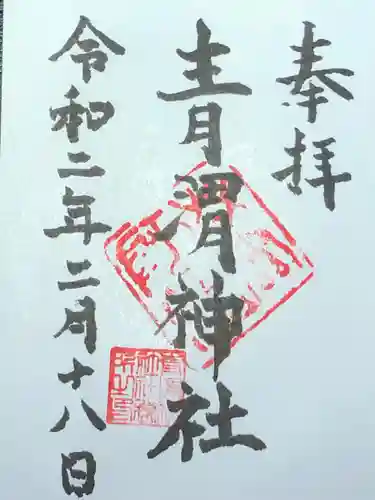 奉拝
青渭神社
令和二年二月十八日